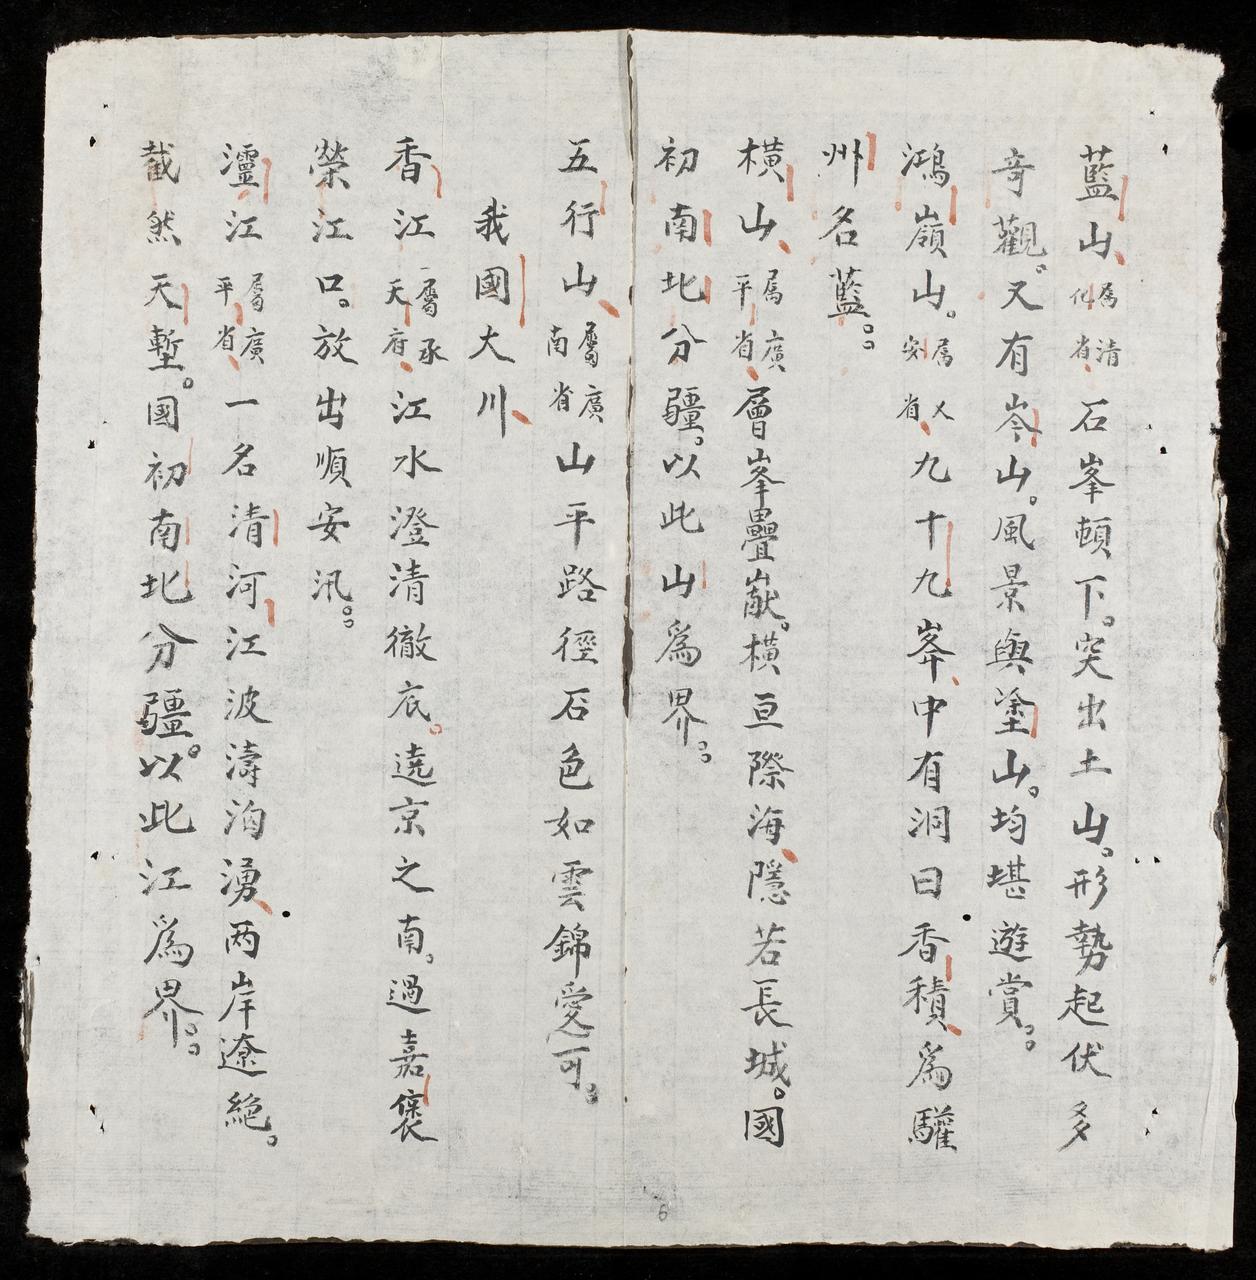 藍山属清化省石峯頓下。突出土山。形勢起伏多
竒觀。又有岑山。風景與塗山。均堪遊賞。
鴻嶺山。属乂安省九十九峯中有洞曰香積為驩
州名藍。
橫山属廣平省層峯疊巘。橫亘際海隱若長城。國
初南北分疆。以此山為界。
五行山屬廣南省山平路徑石色如雲錦愛可。
我國大川
香江屬承天府江水澄清徹底。遶京之南。過嘉
榮江口。放出順安汛。
瀘江屬廣平省一名清河江波濤洶湧两岸遼絕。
截然天塹。國初南北分疆。以此江為界。
6